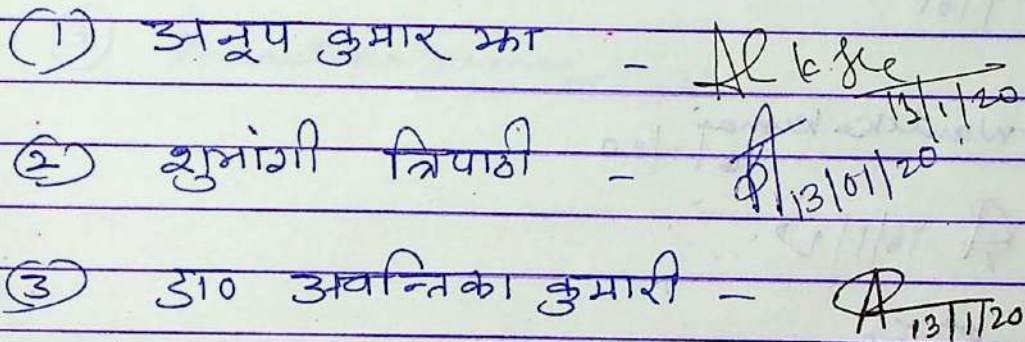 ① अनूप कुमार झा - 13/1/20
② शुभांगी त्रिपाठी - 13/01/20
③ डा० अवन्तिका कुमारी - 13/1/20